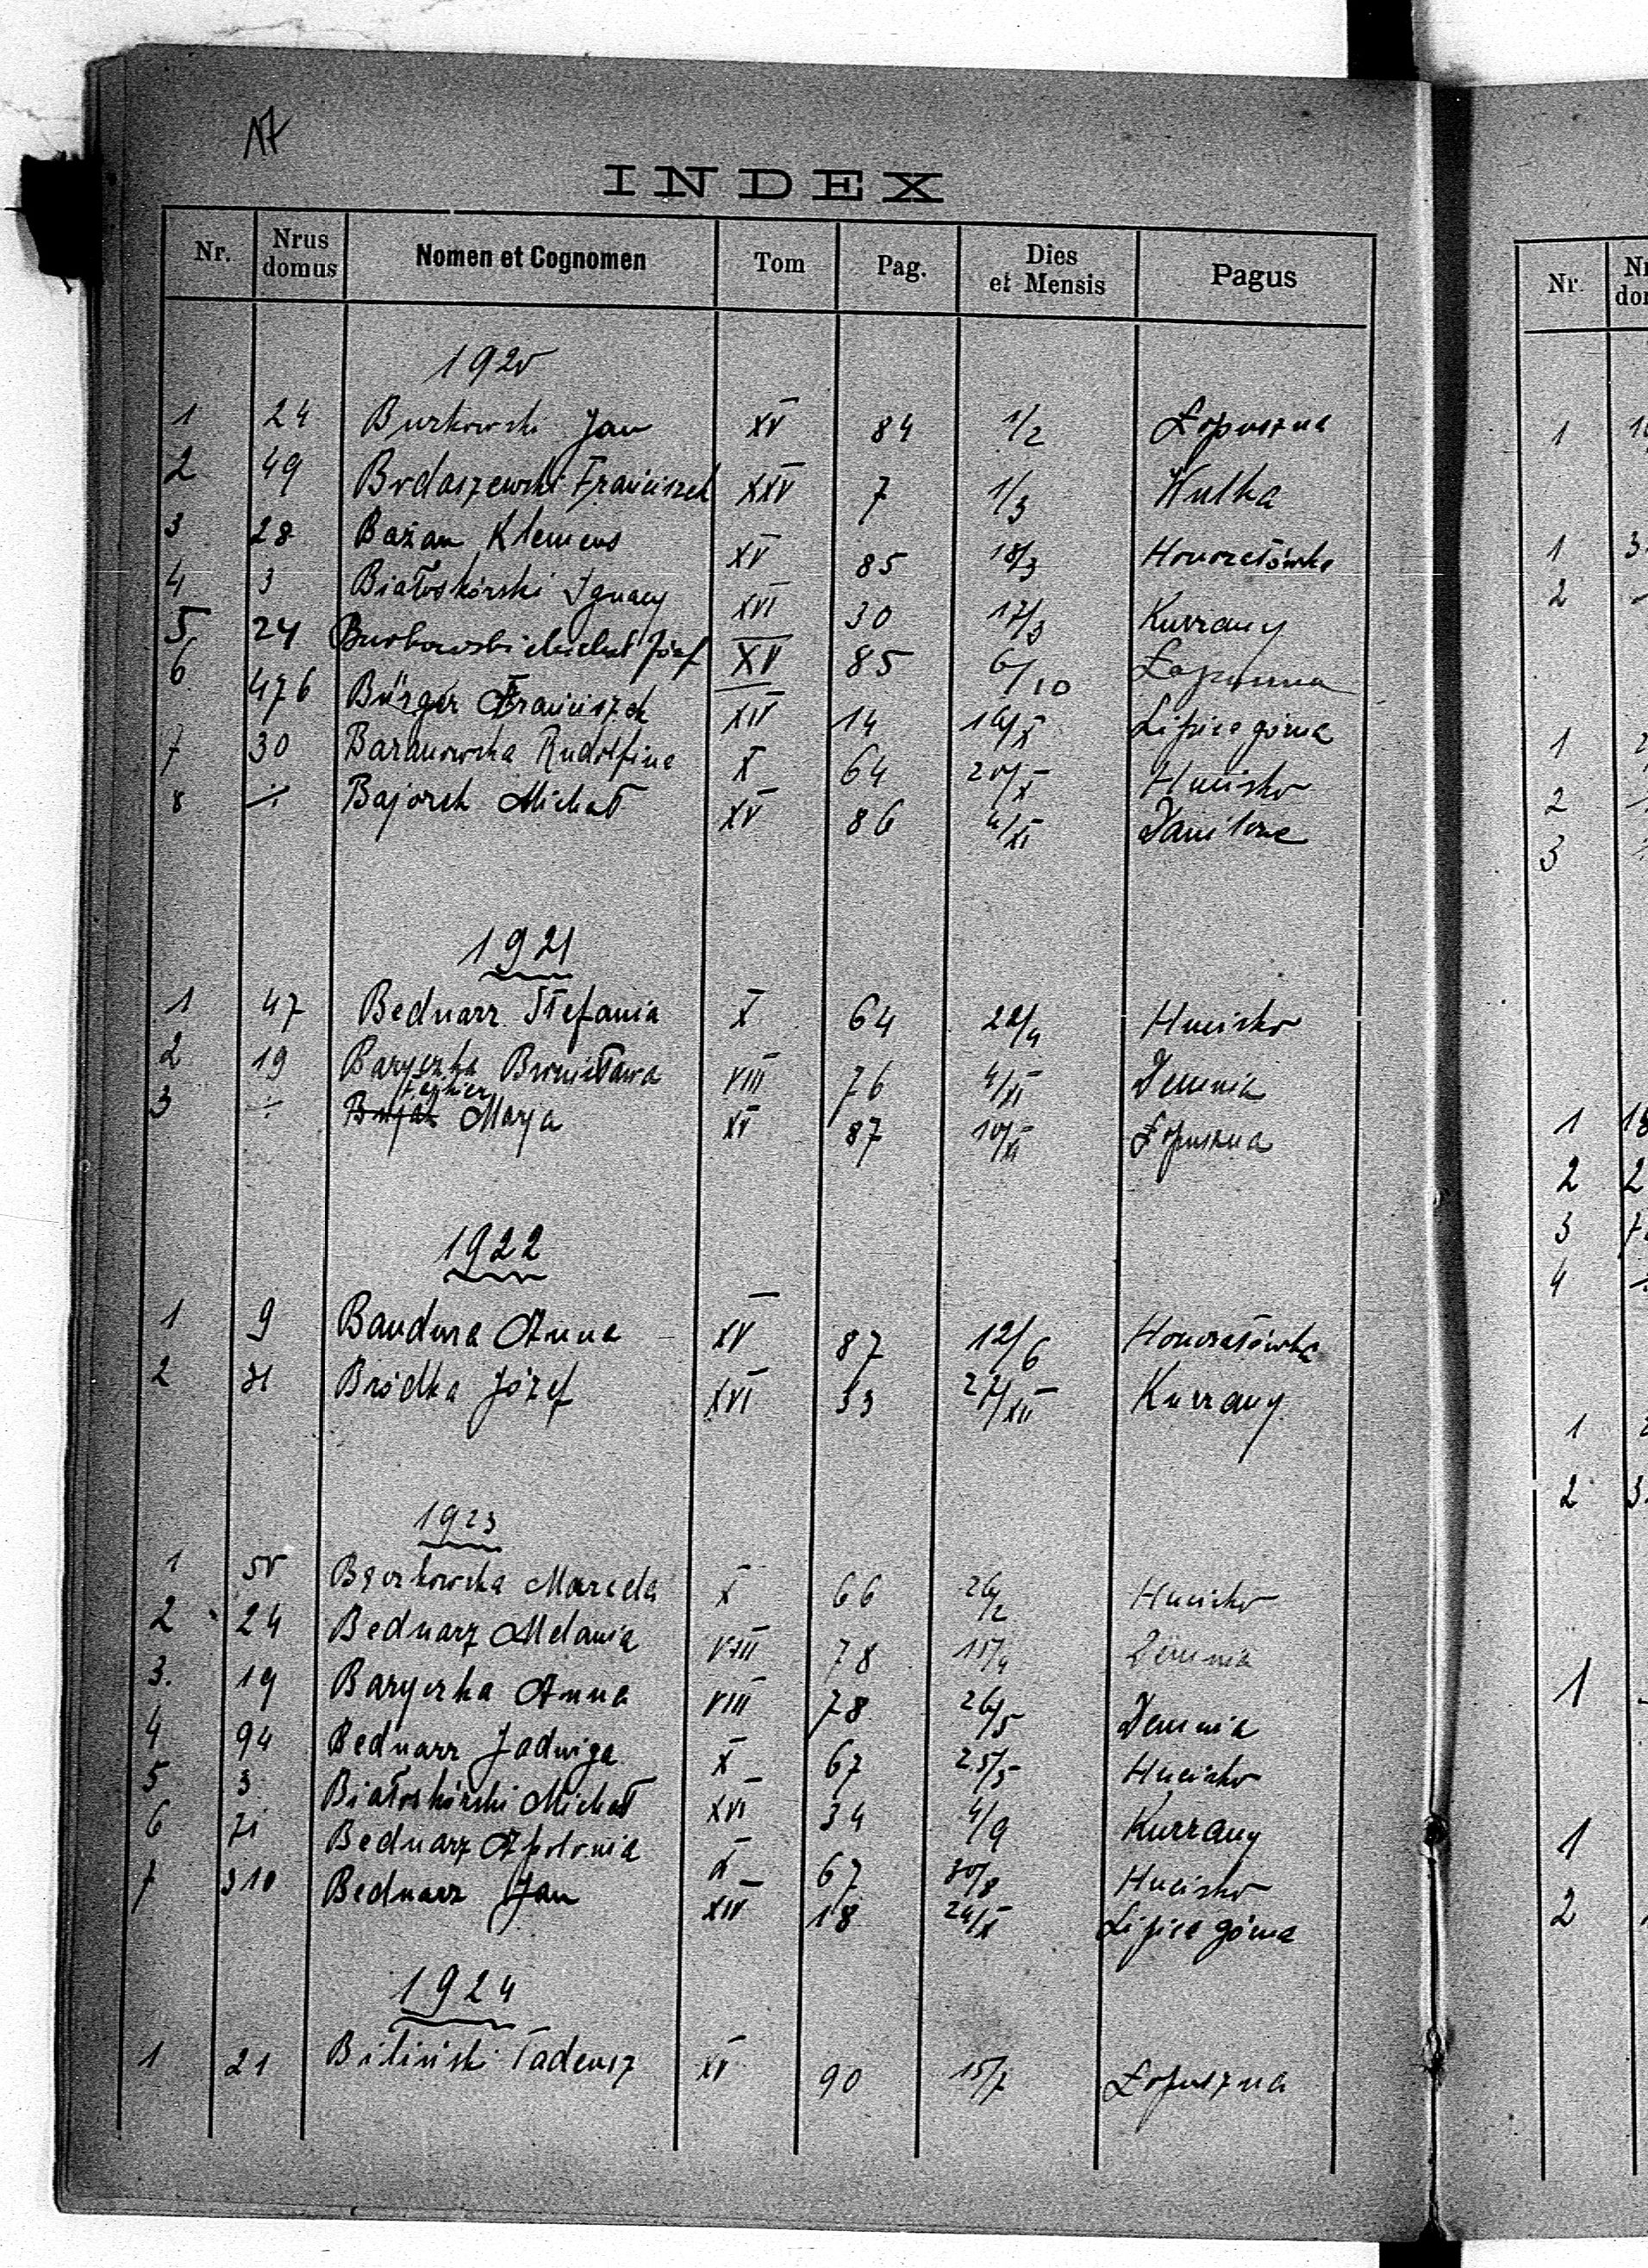 17
INDEX
Nr. Nrus domus Nomen et Cognomen Tom Pag. Dies et Mensis Pagus
1920
1 24 Burkowski Jan XV 84 1/2 Łopuszna
2 49 Bodaszewski Franciszek XXV 7 1/3 Wulka
3 28 Bażan Klemens XV 85 18/3 Honoratówka
4 3 Białoskórski Ignacy XVI 30 17/3 Kurzany
5 24 Burkowski Michał Józef XV 85 6/10 Łopuszna
6 476 Bürger Franciszek XIV 14 16/X Lipica górna
7 30 Baranowska Rudolfina X 64 20/X Hucisko
8 ./. Bajorek Michał XV 86 4/XI Danilcze
1921
1 47 Bednarz Stefania X 64 22/4 Hucisko
2 19 Baryczka Bronisława VIII 76 4/XI Demnia
3 ./. Marja XV 87 10/XI Łopuszna
1922
1 9 Bandura Anna XV 87 12/6 Honoratówka
2 31 Bródka Józef XVI 33 27/XII Kurzany
1923
1 50 Marcela X 66 26/2 Hucisko
2 24 Bednarz Melania VIII 78 15/4 Demnia
3. 19 Baryczka Anna VIII 78 26/5 Demnia
4 94 Bednarz Jadwiga X 67 25/5 Hucisko
5 3 Białoskórski Michał XVI 34 4/9 Kurzany
6 71 Bednarz Apolonia X 67 30/8 Hucisko
7 310 Bednarz Jan XIV 18 24/X Lipica górna
1924
1 21 Biliński Tadeusz XV 90 15/7 Łopuszna
Nr
1
1 3
2
1
2
3
1 18
2 2
3 7
4
1
2 3
1
1
2